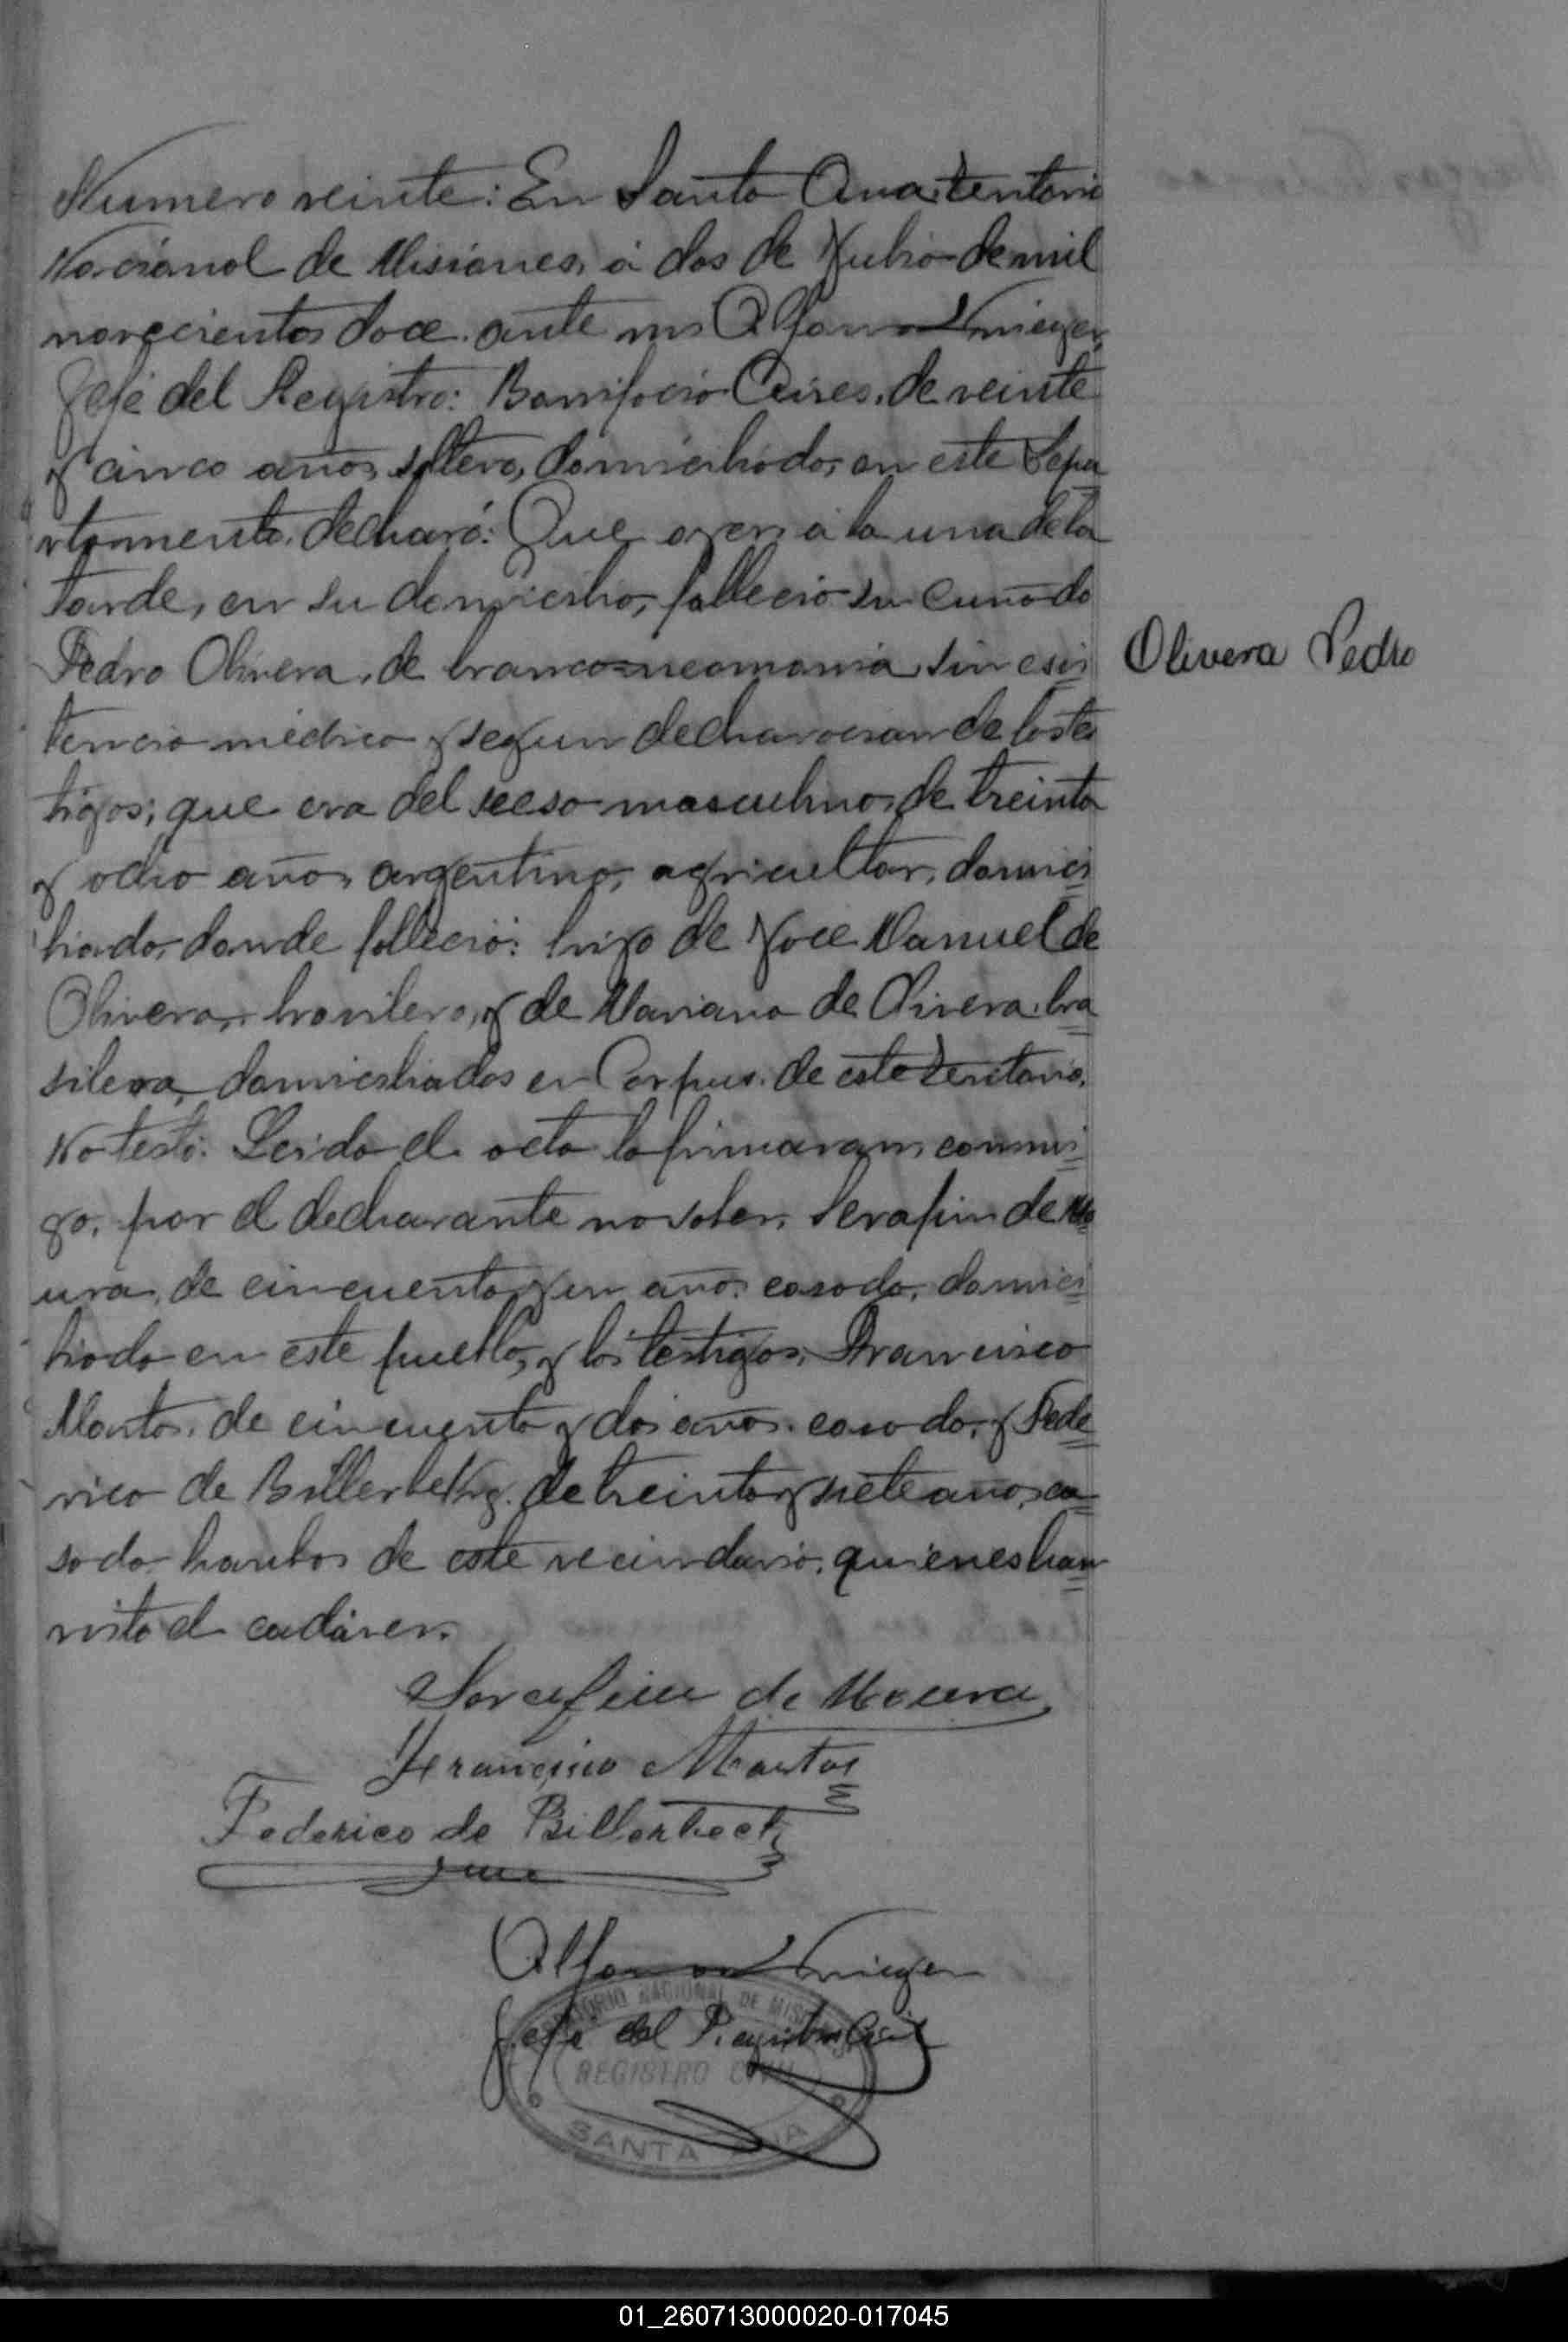 Numero veinte: En Santa Ana, territorio
Nacional de Misiones, á dos de Julio de mil
novecientos doce, ante mi Alfonso Krieger,
Jefe del Registro: Bonifacio Aires, de veinte
y cinco años, soltero, domiciliado, en este Depa
rtamento, declaró: Que ayer, á la una de la
tarde, en su domicilio, fallecio su cuñado
Pedro Olivera, de bronco=neomonia, sin esis
tencia médica y segun declaracion de los tes
tigos; que era del secso masculino, de treinta
y ocho años, argentino, agricultor, domici
liado, donde falleció: hijo de Joce Manuel de
Olivera, brasilero, y de Mariana de Olivera, bra
silera, domiciliados en Corpus, de este territorio.
No testó. Leida el acta la firmaron, conmi
go, por el declarante no saber, Serafin de Mo
ura, de cincuenta y un años, casado, domici
liado en este pueblo, y los testigos, Francisco
Mantos, de cincuenta y dos años, casado, y Fede
rico de Billerbek, de treinta y siete años, ca
sado, hambos de este vecindario, quienes han
visto el cadáver.
Olivera Pedro
Serafin de Moura
Francisco Mantos
Federico de Billerbeck
Alfonso Krieger
Jefe del Registro Civil
TERRITORIO NACIONAL DE MISIONES
REGISTRO CIVIL
SANTA ANA
01_260713000020-017045